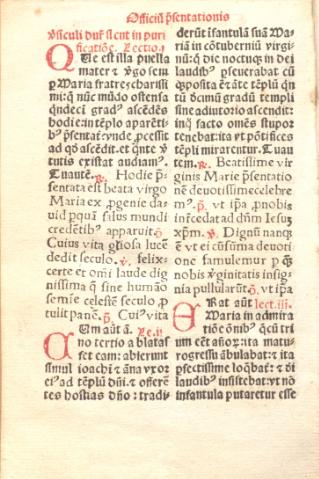 Officiū p̄sentationis
v̄siculi dūt sicut in puri
ficatiōe. Lectio.i.
Que est illa puella
mater & v̄go semp
Maria fratres charissi
mi: q̄ nūc mūdo ostensa
qndeci gradꝰ ascēdēs
hodie in tēplo aparēti
bꝰ p̄sentat
ad qd ascēdit. et qnte v̄
tutis existat audiam.
Tu autē. ꝶ. Hodie p̄
sentata est beata virgo
Maria ex ꝓgenie da
uid p quā filius mundi
credentibꝰ apparuit.
Cuius vita gl̄iosa lucē
dedit seculo. ℣. felix
certe et omni laude dig
nissima q̄ sine humāo
semīe celestē seculo ꝓ
tulit panē. Cuiꝰ
Cum aut a Le.ii
no tertio a blata
set eam: abierunt
simul ioachi & āna vxor
eiꝰ ad tēplū dn̄i. & offerē
tes hostias dn̄o: tradi
derūt īfantulā suā Ma
riā in cōtuberniū virgi
nū: q̄ die noctuqꝫ in dei
laudibꝰ pseuerabat cū
tū decimū gradū templi
sine adiutorio ascendit:
inqꝫ facto omēs stupor
tenebat: ita vt pōtifices
templi mirarentur. Tu au
tem. ꝶ. Beatissime vir
ginis Marie p̄sentatio
nem deuotissime celebre
mꝰ. vt ipa p nobis
intercedat ad dn̄m Jesuꝫ
xp̄m. ℣. Dignū nanqꝫ
ē vt ei cū summa deuoti
one famulemur p quā
nobis v̄ginitatis insig
nia pullularūt. vt ipa
Erat aūt lect.iii.
Maria in admira
tiōe oībꝰ
um eēt ita matu
ro gressu ābulabat: & ita
pfectissime loqbat: & dei
laudibꝰ insistebat: vt nō
infantula putaretur esse